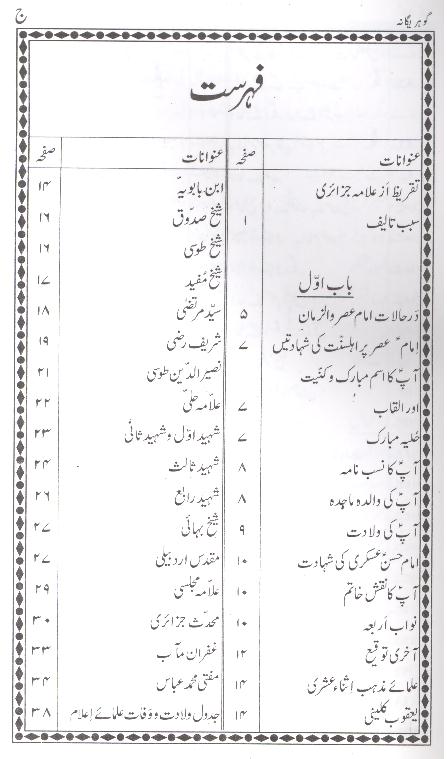 گوہر یگانہ
ج
فہرست
عنوانات صفحہ
تقریظ از علامہ جزائری
سبب تالیف ۱
باب اوّل
درحالات امام عصر والزمانؑ ۵
امامؑ عصر پر اہلسنت کی شہادتیں ۷
آپؑ کا اسم مبارک و کنیت
اور القاب ۷
حلیہ مبارک ۷
آپؑ کا نسب نامہ ۸
آپؑ کی والدہ ماجدہ ۸
آپؑ کی ولادت ۹
امام حسن عسکریؑ کی شہادت ۱۰
آپؑ کا نقش خاتم ۱۰
نواب اربعہ ۱۰
آخری توقیع ۱۲
علمائے مذہب اثناء عشری ۱۴
یعقوب کلینیؒ ۱۴
عنوانات صفحہ
ابن بابویہؒ ۱۴
شیخ صدوقؒ ۱۶
شیخ طوسی ۱۶
شیخ مُفید ۱۷
سیّد مرتضیٰ ۱۸
شریف رضی ۱۹
نصیر الدّین طوسی ۲۱
علامہ حلّی ۲۲
شہید اوّل و شہید ثانی ۲۳
شہید ثالث ۲۴
شہید رابع ۲۶
شیخ بہائی ۲۷
مقدس اردبیلی ۲۷
علامہ مجلسی ۲۹
محدث جزائری ۳۰
غفران مآب ۳۳
مفتی محمد عباس ۳۴
جدول ولادت و وفات علمائے اعلام ۳۸